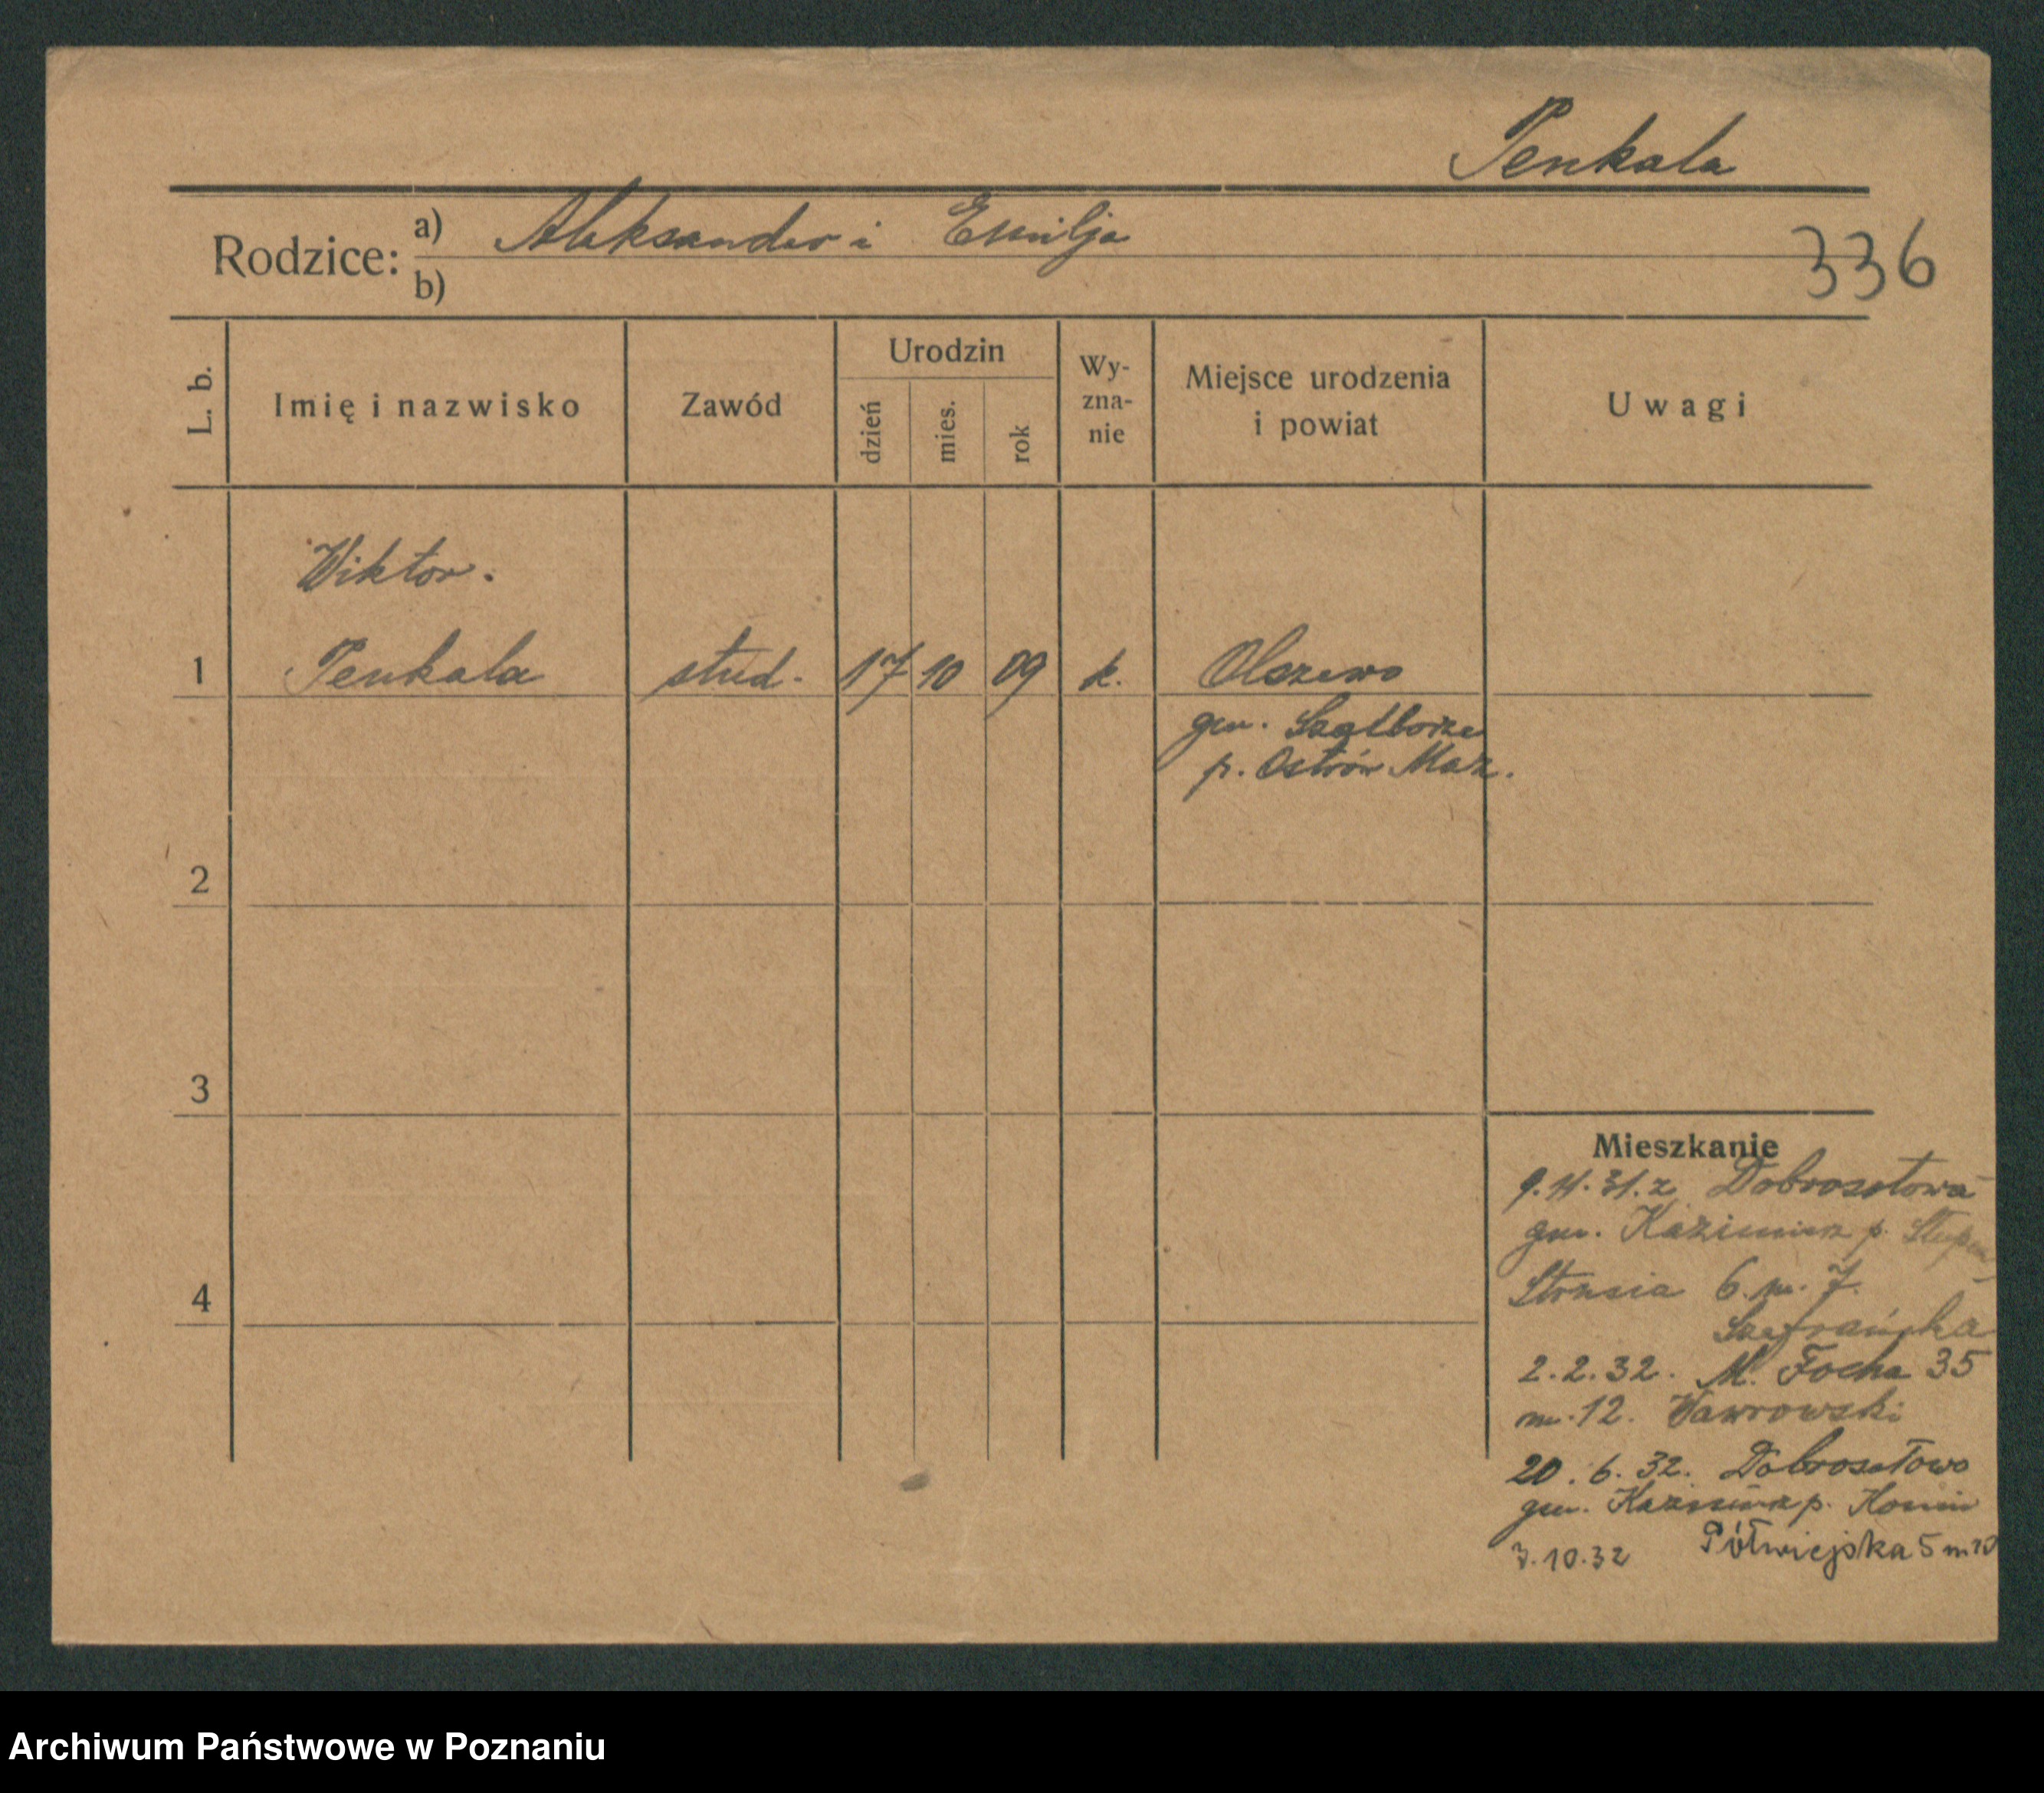 Penkala
Rodzice: a) Aleksander i Emilja
b)
336
L. b.
Imię i nazwisko
Zawód
Urodzin
dzień
mies.
rok
Wy-
zna-
nie
Miejsce urodzenia
i powiat
Uwagi
Wiktor.
1 Penkala stud. 17 10 09 k. Olszewo
gm.
p. Ostrów Maz.
2
3
4
Mieszkanie
9.11.31. z Dobrosołowa
gm. Kazimierz p.
6 m. 7.
Szafrańska
2.2.32. M. Focha 35
m. 12. Wawrowski
20.6.32. Dobrosołowo
gm. Kazimierz p. Konin
3.10.32 Półwiejska 5 m
Archiwum Państwowe w Poznaniu